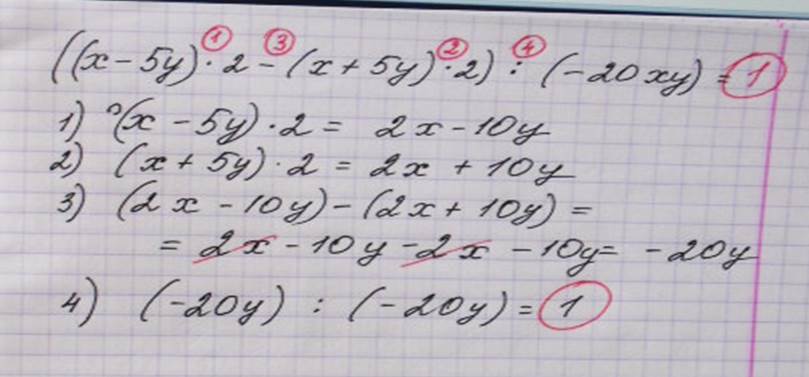 ((x - 5y) · 2 - (x + 5y) · 2) : (-20xy) = 1
1) (x - 5y) · 2 = 2x - 10y
2) (x + 5y) · 2 = 2x + 10y
3) (2x - 10y) - (2x + 10y) =
= 2x - 10y - 2x - 10y = -20y
4) (-20y) : (-20y) = 1